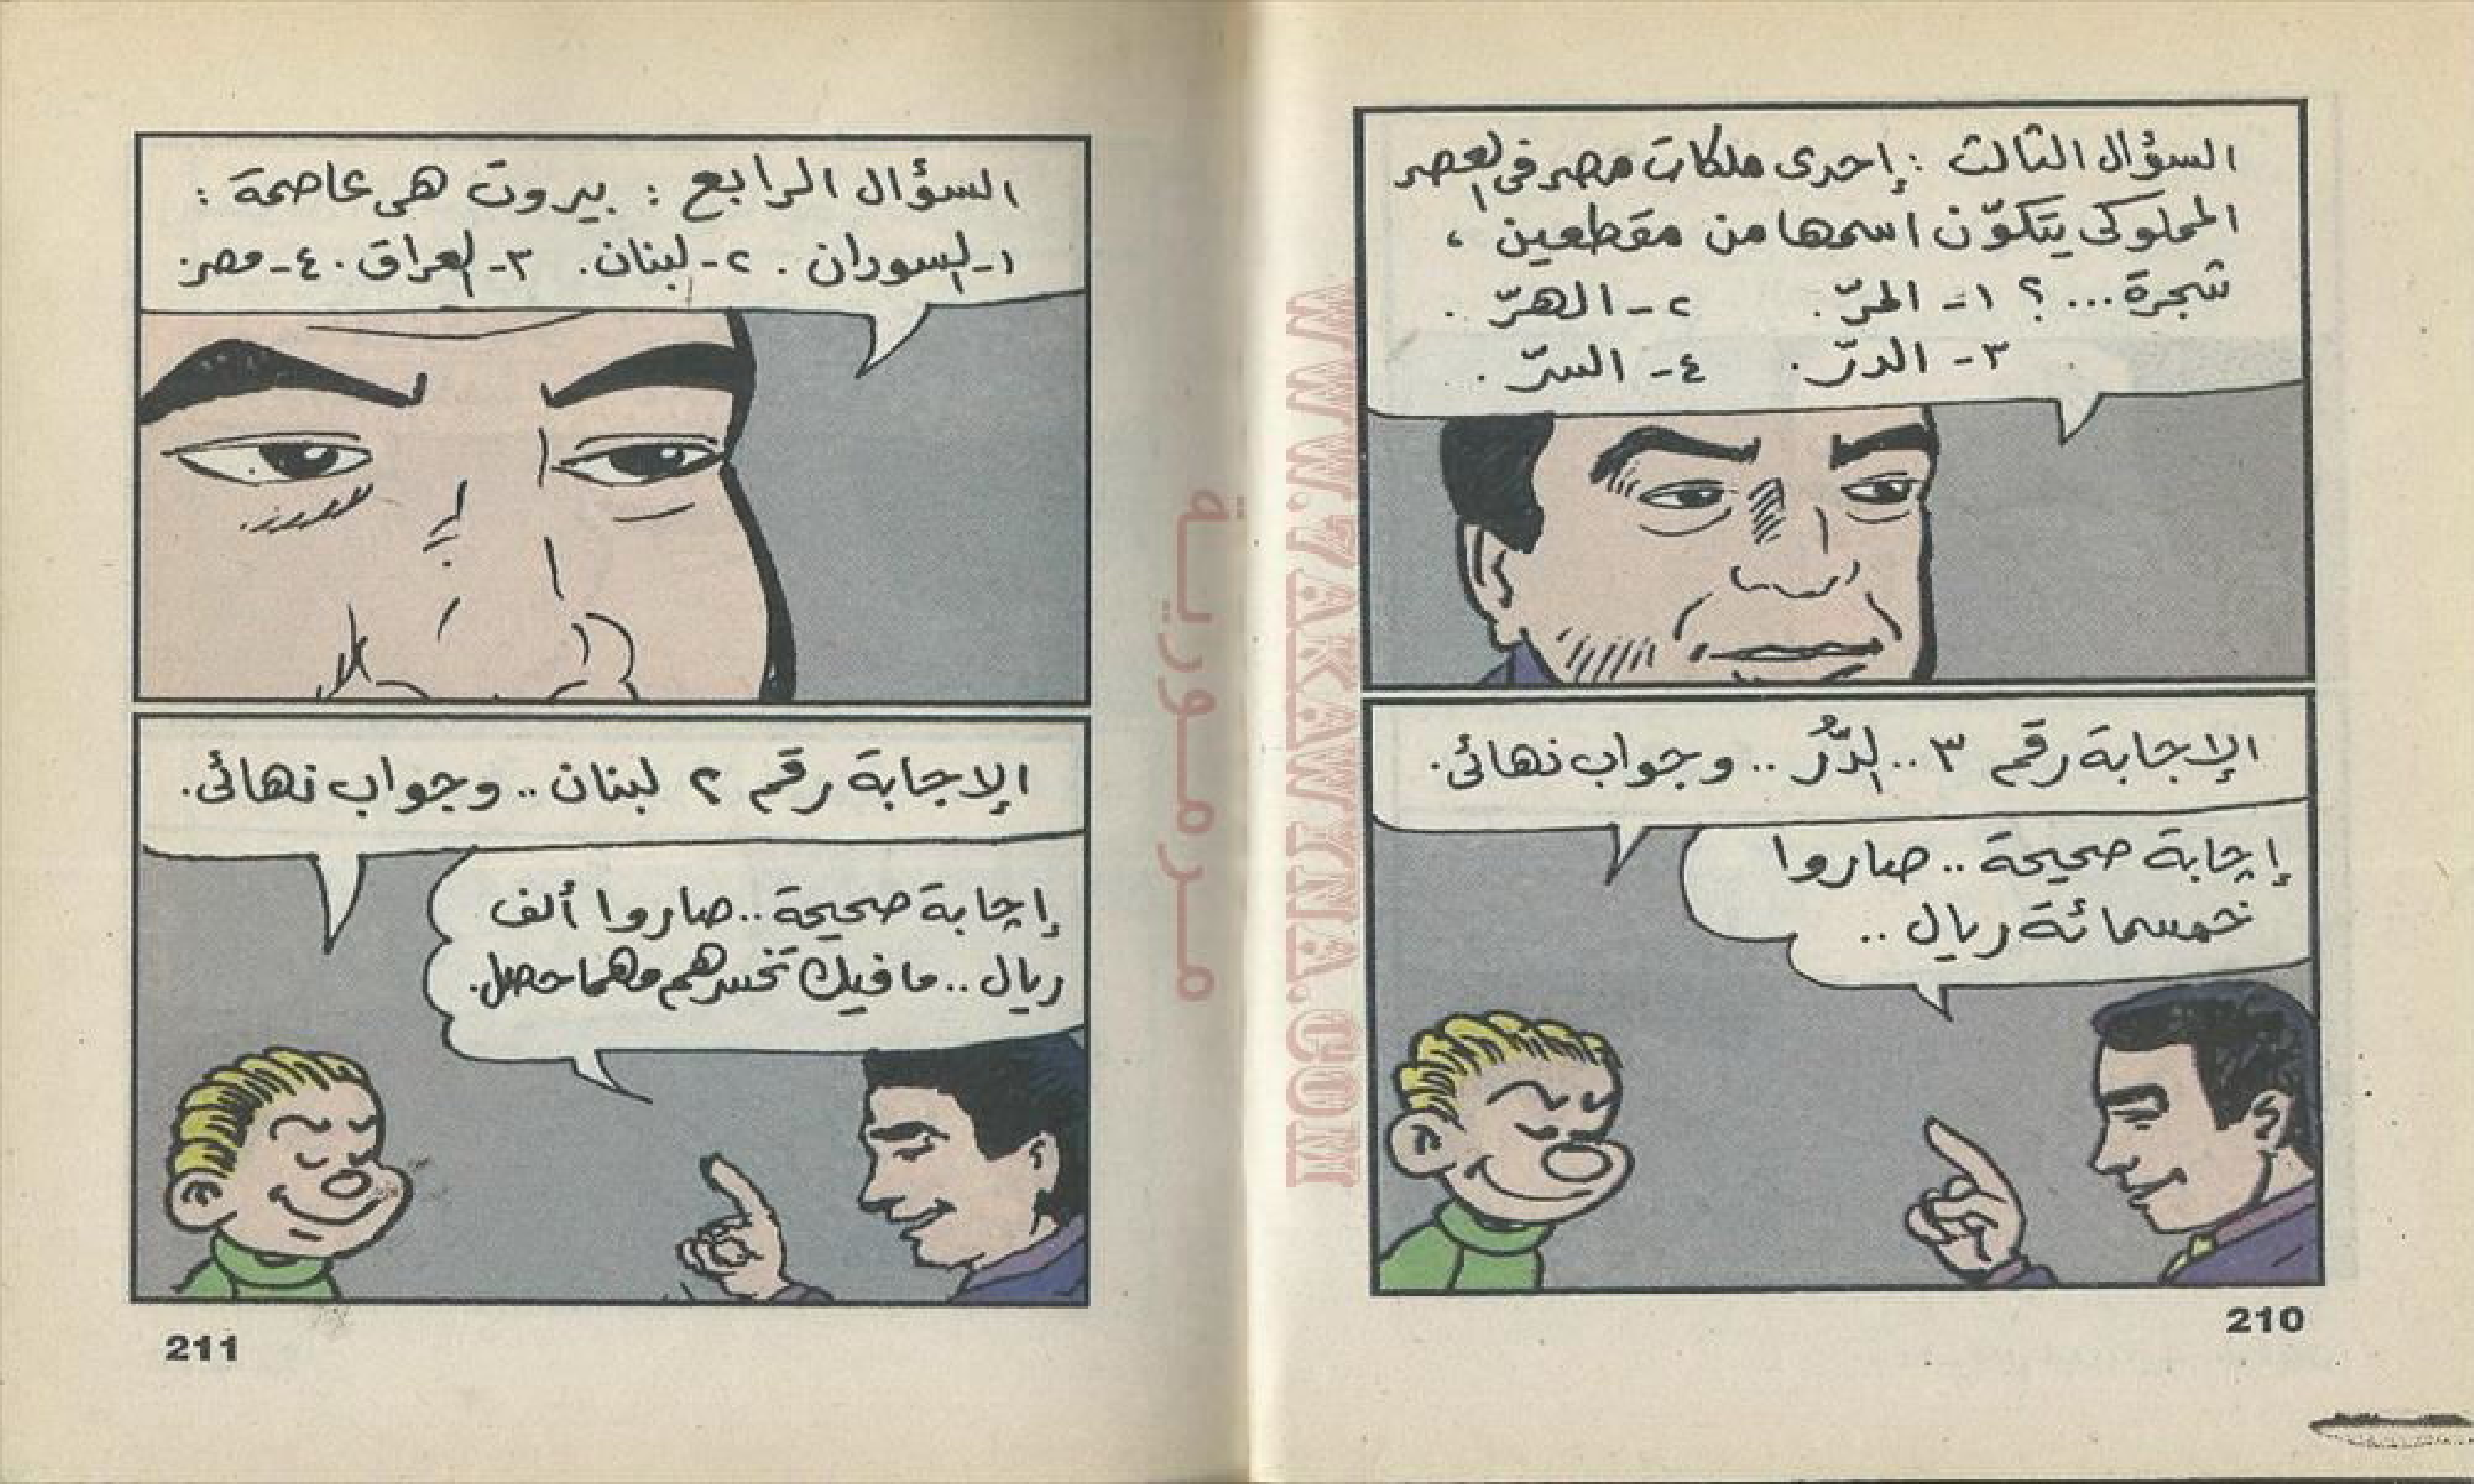 السؤال الثالث : إحدى ملكات مصر فى العصر
المملوكى يتكوّن اسمها من مقطعين ،
شجرة ...؟ ١- المرّ. ٢- الهرّ.
٣- الدرّ. ٤- السرّ.
الإجابة رقم ٣ .. الدُّرُّ .. وجواب نهائى.
إجابة صحيحة .. صاروا
خمسمائة ريال ..
210
السؤال الرابع : بيروت هى عاصمة :
١- السودان. ٢- لبنان. ٣- العراق. ٤- مصر.
الإجابة رقم ٢ لبنان .. وجواب نهائى.
إجابة صحيحة .. صاروا ألف
ريال .. ما فيك تخسرهم مهما حصل.
211
مرمورية
WWW.7AKAWINA.COM